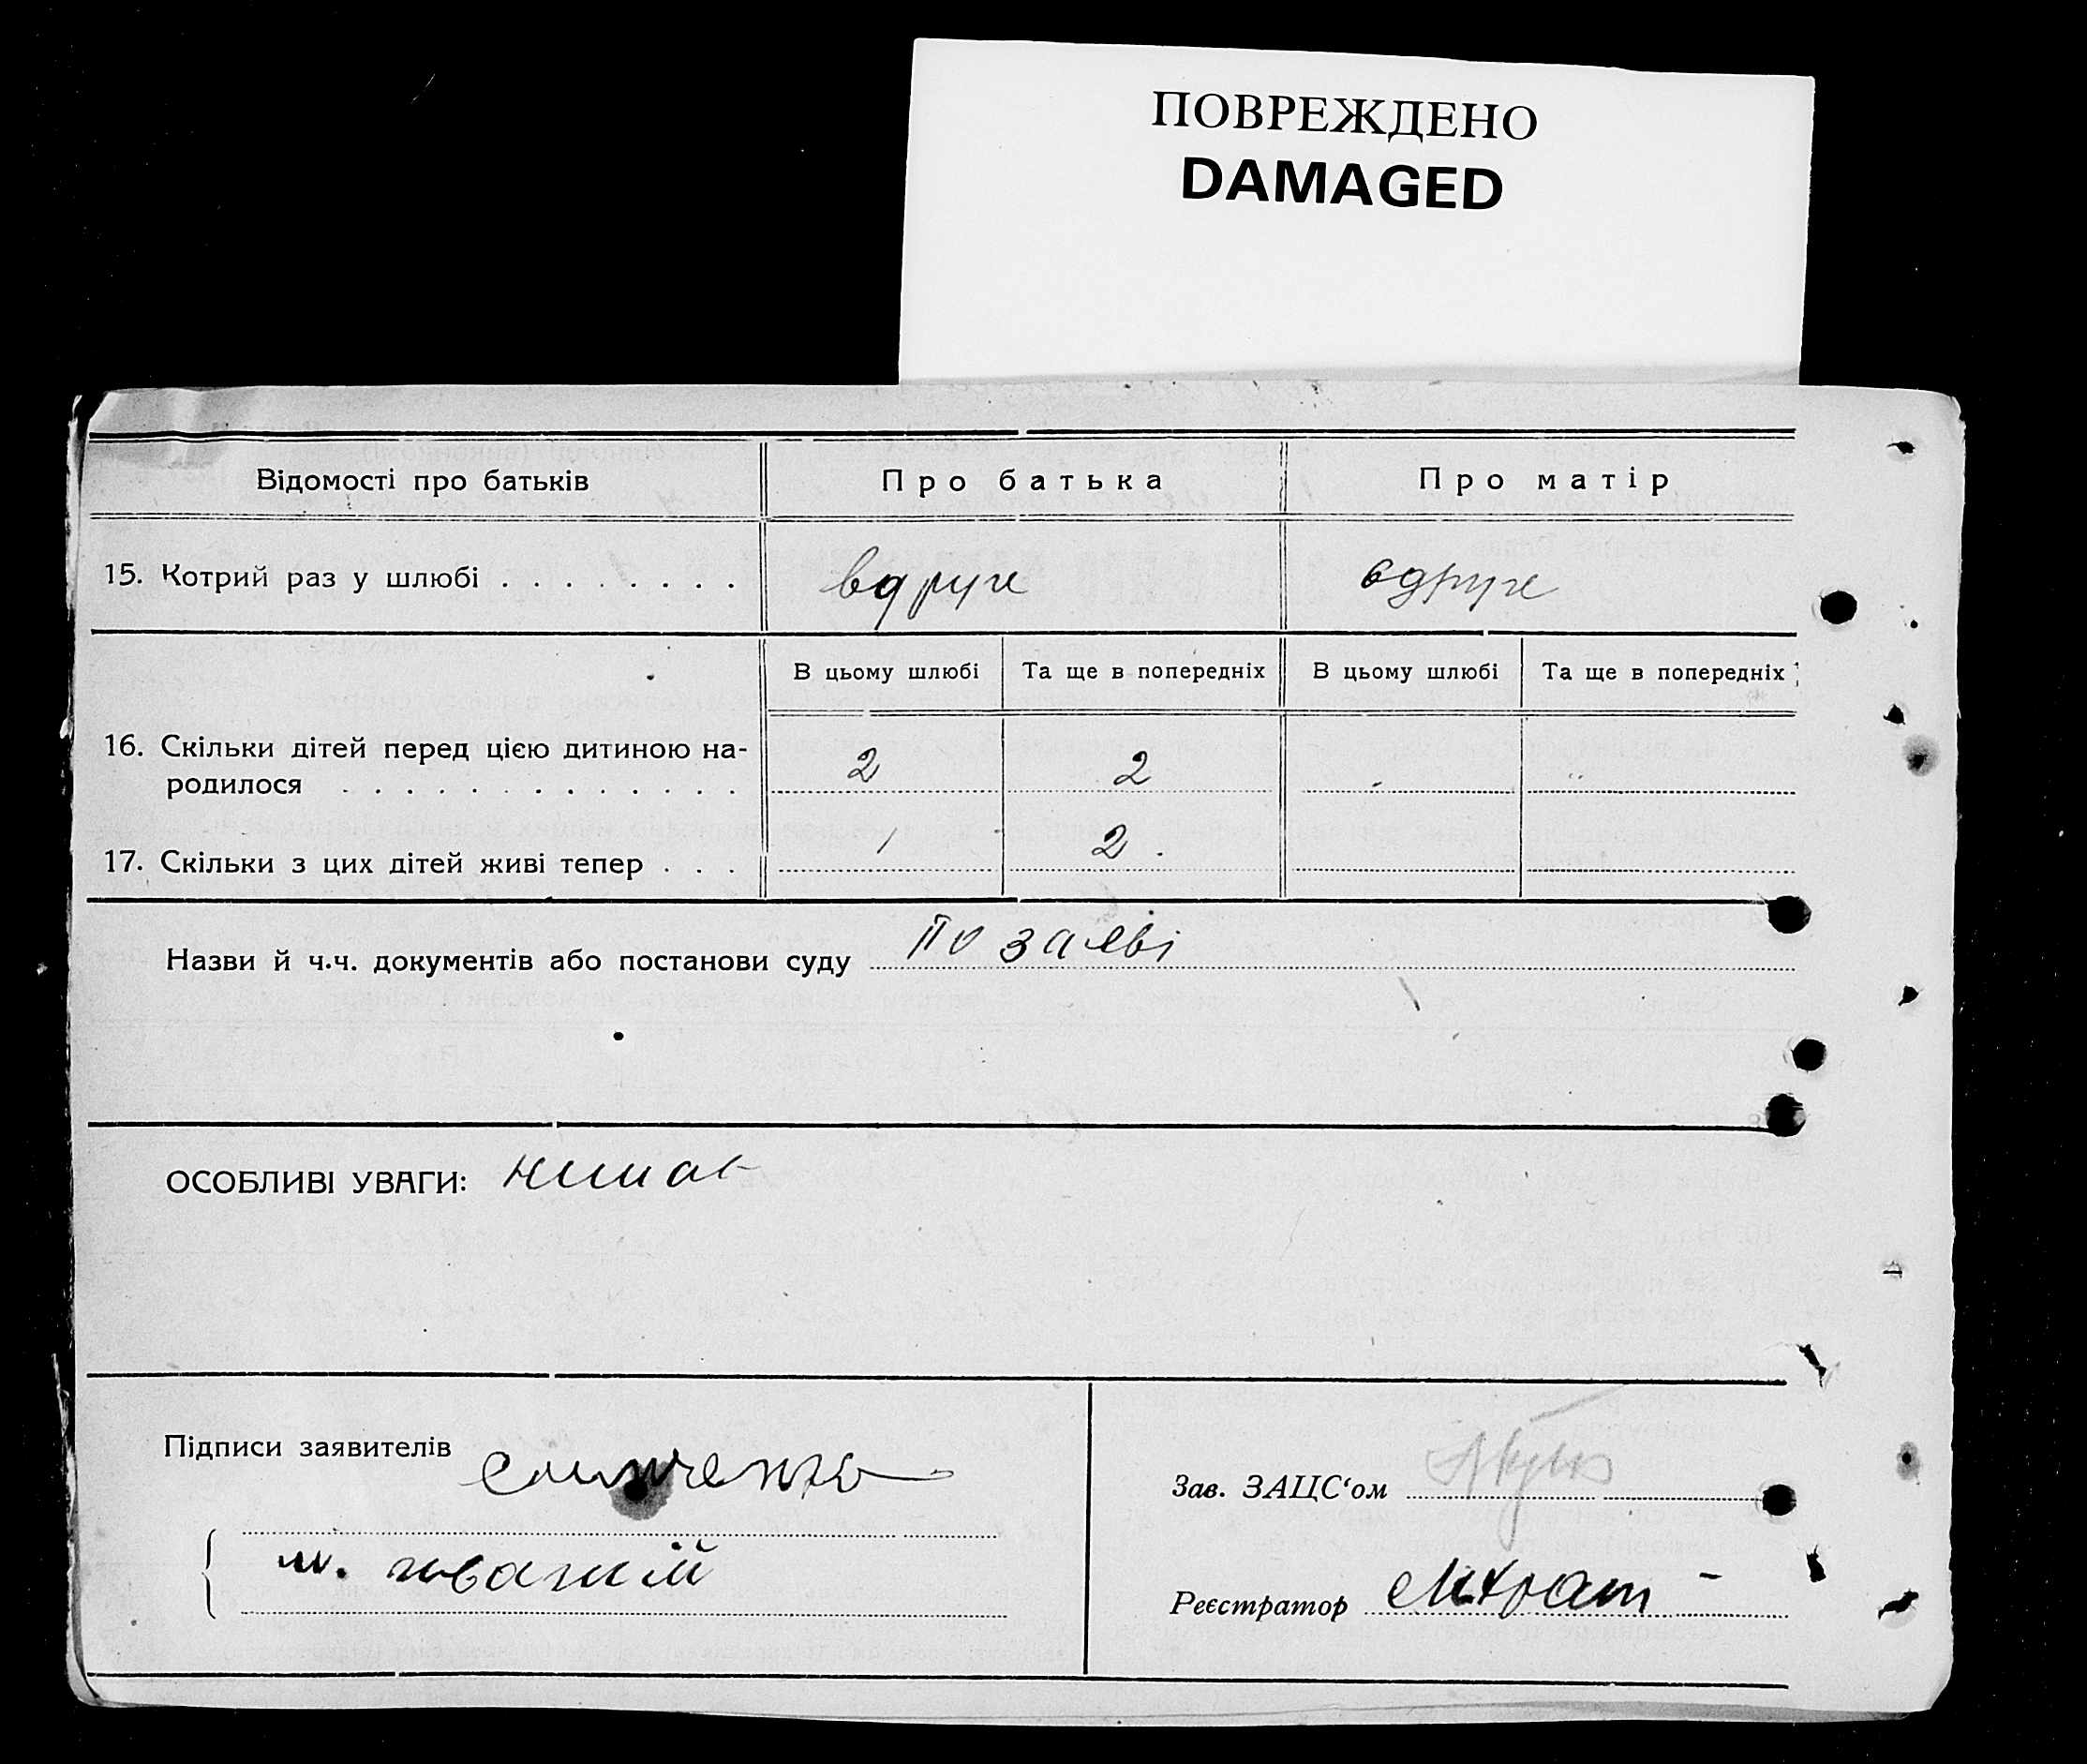 ПОВРЕЖДЕНО
DAMAGED
Відомості про батьків Про батька Про матір
15. Котрий раз у шлюбі . . . . . . . . вдруге вдруге
В цьому шлюбі Та ще в попередніх В цьому шлюбі Та ще в попередніх
16. Скільки дітей перед цією дитиною на-
родилося . . . . . . . . . . . . . 2 2
17. Скільки з цих дітей живі тепер . . . 1 2.
Назви й ч.ч. документів або постанови суду по заяві
ОСОБЛИВІ УВАГИ:
Підписи заявителів
Зав. ЗАЦС‘ом
Реєстратор